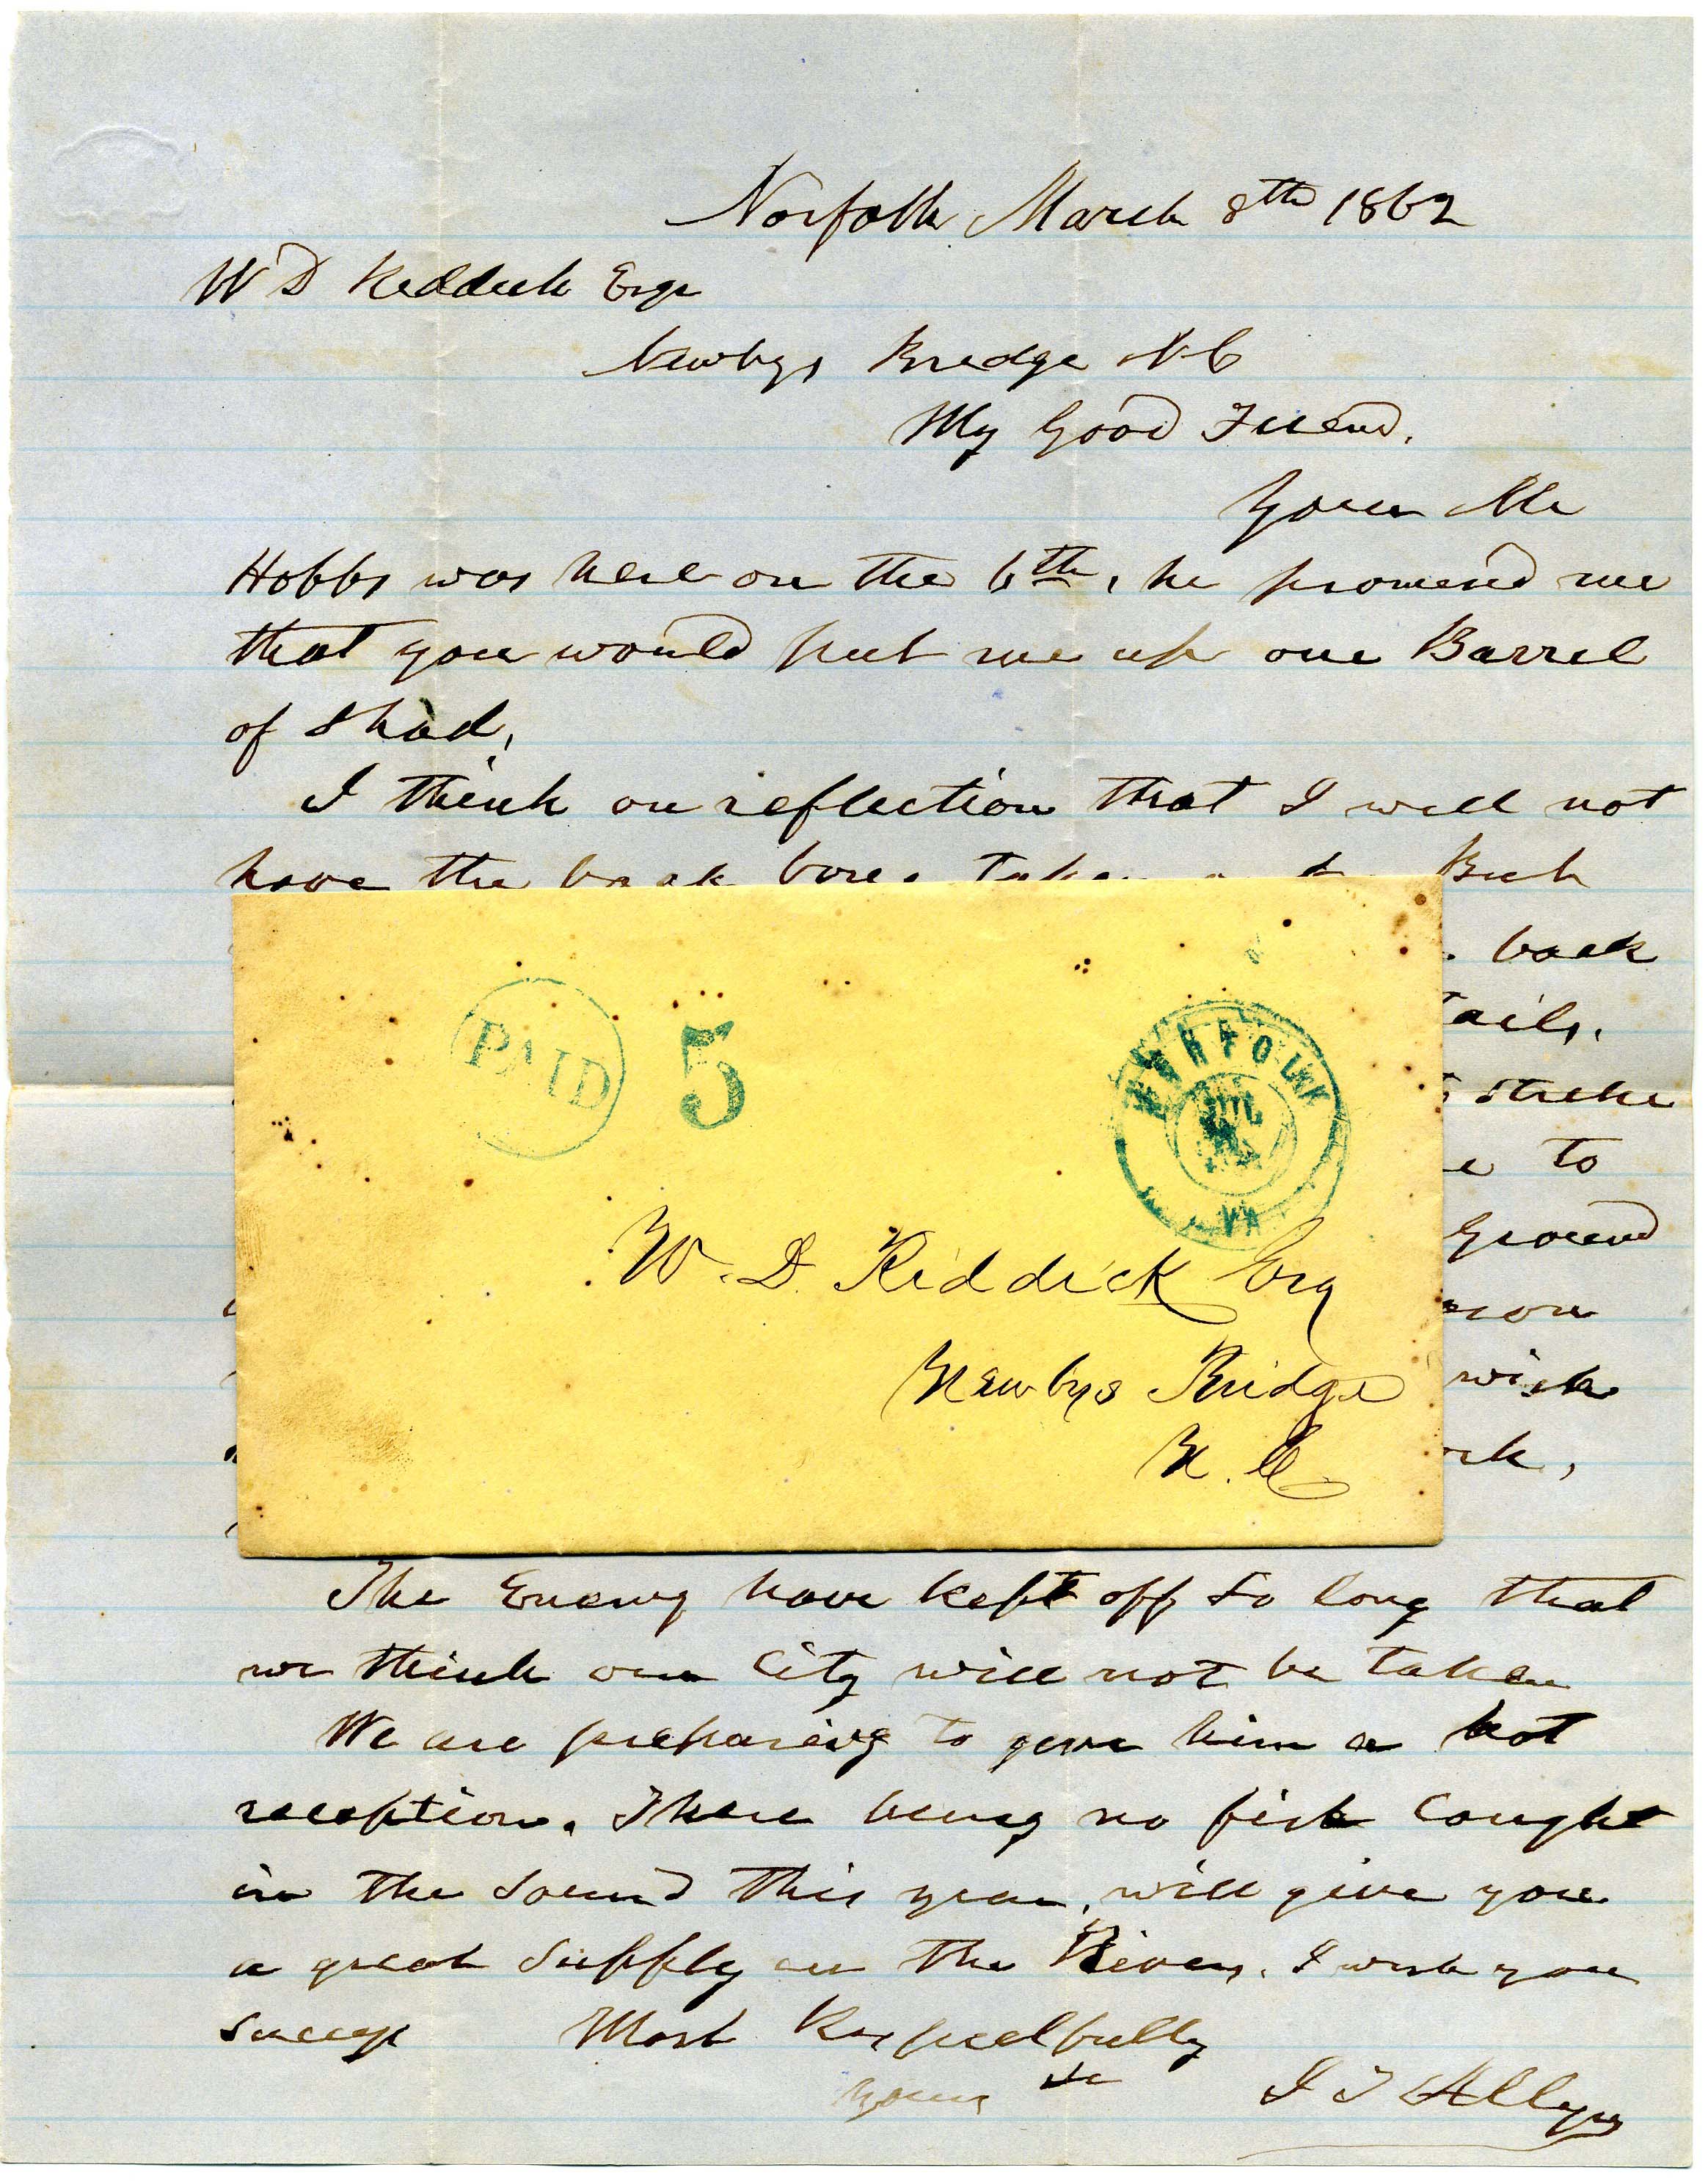 Norfolk March 8th 1862
W D Reddick Esqr
Newbys Bredge N C
My Good Friend.
Your Mr
Hobbs was here on the 6th, he promised me
that you would put me up one Barrel
of Shad,
I think on reflection that I will not
have the back bones taken out. But
back
tails.
Strike
to
Ground
wish
PAID 5
NORFOLK
VA
W. D Riddick Esq
Newbys Bridge
N. C.
The Enemy have kept off so long that
we think our City will not be taken
We are preparing to give him a hot
reception. There being no fish Caught
in the Sound this year, will give you
a great Supply in the River. I wish you
Success Most Respectfully
Yours &c J T Allyn